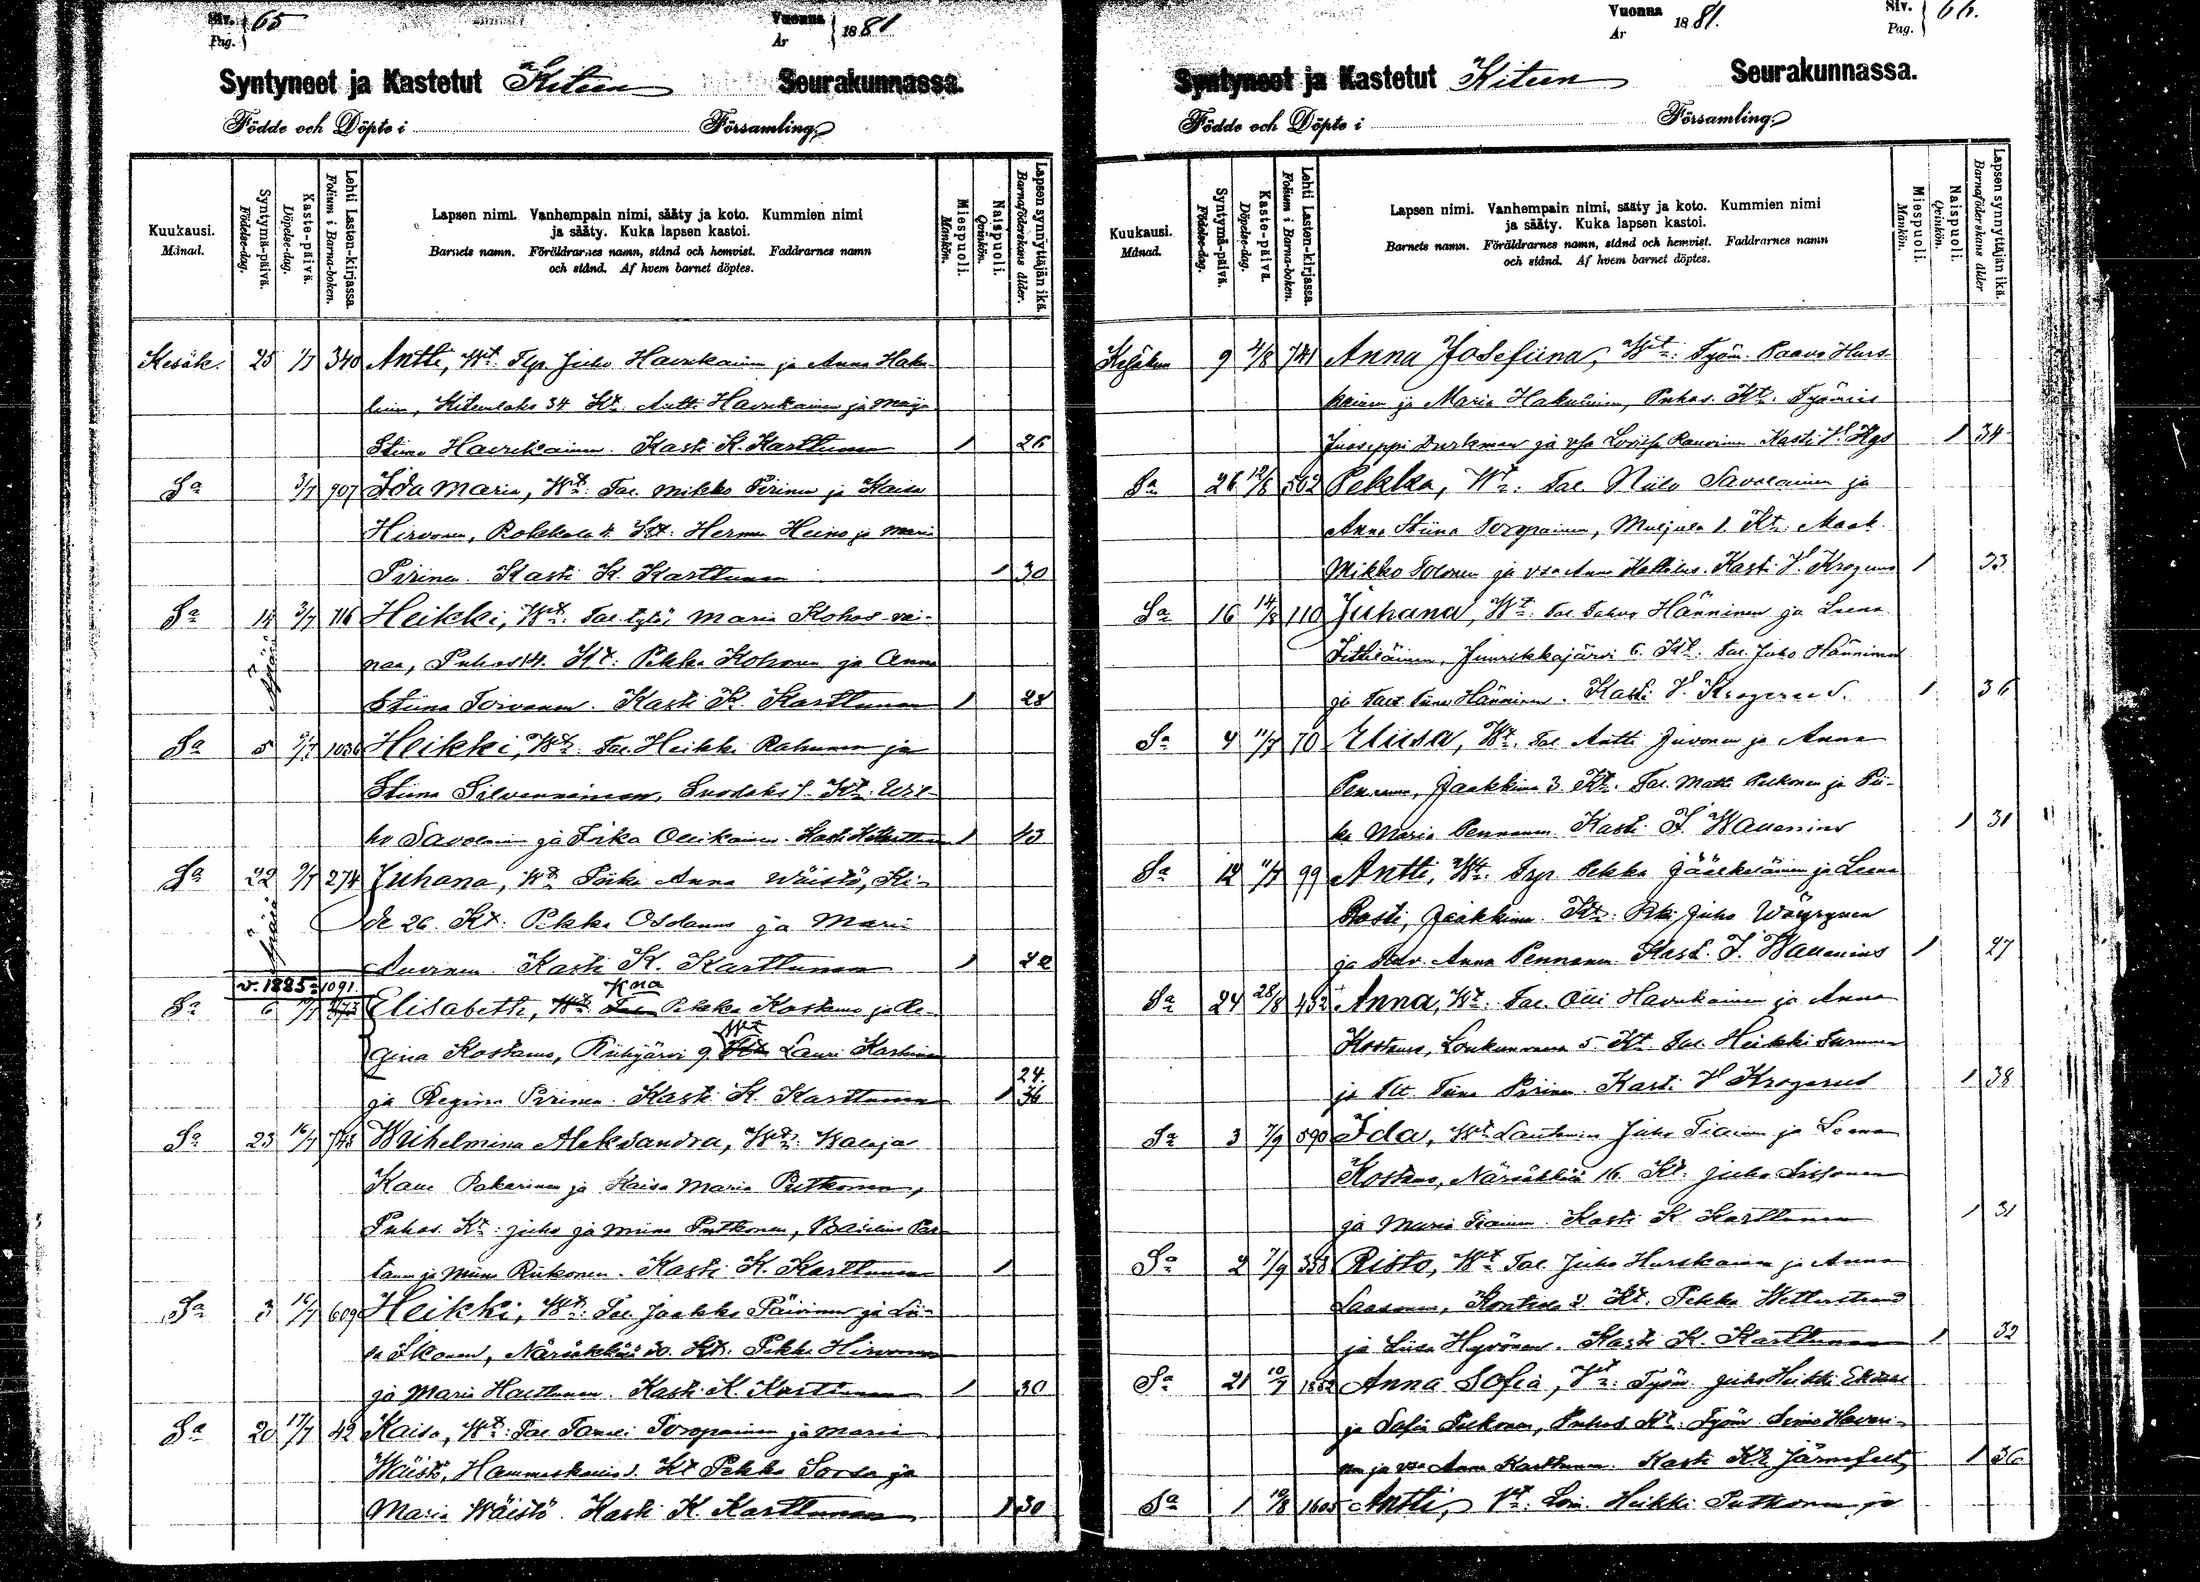 Siv. 65
Pag.
Vuonna 1881
År
Syntyneet ja Kastetut Kiteen Seurakunnassa.
Födde och Döpte i Församling
Kuukausi. Månad.
Syntymä-päivä. Födelse-dag.
Kaste-päivä. Döpelse-dag.
Lehti Laston-kirjassa. Folium i Barna-boken.
Lapsen nimi. Vanhempain nimi, sääty ja koto. Kummien nimi
ja sääty. Kuka lapsen kastoi.
Barnets namn. Föräldrarnes namn, stånd och hemvist. Faddrarnes namn
och stånd. Af hvem barnet döptes.
Miespuoli. Mankön.
Naispuoli. Qvinkön.
Lapsen synnyttäjän ikä. Barnaföderskans ålder.
Kesäk. 25 1/7 340 Antti, Wt. Juho Havukainen ja Anna Haku-
linen, Kiteenlaks 34 Kt. Antti Havukainen ja Maija
Stiina Havukainen. Kasti K. Karttunen 1 26
Sa 3/7 907 Ida Maria, Wt: Tal. Mikko Pirinen ja Kaisa
Hirvonen, Rokkala 4. Kt: Herman Heino ja Maria
Pirinen. Kasti K. Karttunen 1 30
Sa 14 3/7 716 Heikki, Wt. Tal. tytär Maria Kohos-vai-
naa, Puhos 14. Kt: Pekka Kohonen ja Anna
Stiina Toivanen. Kasti K. Karttunen 1 28
Sa 5 9/7 1036 Heikki, Wt. Tal. Heikki Rahunen ja
Stiina Silvennoinen, Suorlaks 1. Kt. Wil-
ho Savolainen ja Lika Ollikainen. Kasti K. Karttunen 1 43
Sa 22 9/7 274 Juhana, Wt Piika Anna Wäistö, Ki-
de 26. Kt: Pekka Osslanus ja Maria
Kasti K. Karttunen 1 22
v. 1885 1091. Kna
Sa 6 Elisabetth, Wt. Tal. Pekka Kostamo ja Re-
gina Kostamo, Riihijärvi 9. Kt Lauri Kostamo
24.
ja Regina Pirinen. Kasti K. Karttunen 1 36
Sa 23 16/7 745 Wilhelmina Aleksandra, Wt: Walaja
Kalle Pakarinen ja Kaisa Maria Putkonen,
Puhos. Kt: Juho ja Miina Putkonen, Basilius Par-
tanen ja Miina Riikonen. Kasti K. Karttunen 1
Sa 3 16/7 609 Heikki, Wt: Tal. Jaakko Päivinen ja Lii-
sa Ikonen, Närsäkkälä 20. Kt. Pekka Hirvonen
ja Maria Karttunen. Kasti K. Karttunen 1 30
Sa 20 17/7 42 Kaisa, Wt: Tal. Taneli Toropainen ja Maria
Wäistö, Hammaskaivo 1. Kt Pekka Sorsa ja
Maria Wäistö. Kasti K. Karttunen 1 30
Vuonna 1881.
År
Siv. 66.
Pag.
Syntyneet ja Kastetut Kiteen Seurakunnassa.
Födde och Döpte i Församling
Kuukausi. Månad.
Syntymä-päivä. Födelse-dag.
Kaste-päivä. Döpelse-dag.
Lehti Laston-kirjassa. Folium i Barna-boken.
Lapsen nimi. Vanhempain nimi, sääty ja koto. Kummien nimi
ja sääty. Kuka lapsen kastoi.
Barnets namn. Föräldrarnes namn, stånd och hemvist. Faddrarnes namn
och stånd. Af hvem barnet döptes.
Miespuoli. Mankön.
Naispuoli. Qvinkön.
Lapsen synnyttäjän ikä. Barnaföderskans ålder
9 4/8 741 Anna Josefiina, Wt: Työm. Paavo Hurs-
kainen ja Maria Hakulinen, Puhos. Kt. Työmies
Juoseppi Durkman ja vsa Lovisa Rauvinen Kasti V. Kgs 1 34
Sa 26 12/8 502 Pekka, Wt: Tal. Niilo Savolainen ja
Anna Stiina Toropainen, Muljula 1. Kt: Maak.
Mikko Tolonen ja vsa Anna Kallilas. Kasti V. Krogerus 1 33
Sa 16 14/8 110 Juhana, Wt. Tal. Tahvo Hänninen ja Leena
Juurikkajärvi 6. Kt. Tal. Juho Hänninen
ja Tiina Hänninen. Kasti V. Krogerus. 1 36
Sa 4 11/7 70 Eliisa, Wt. Tal. Antti Juvonen ja Anna
Pennanen, Jaakkima 3. Kt. Tal. Matti Pelkonen ja Pii-
ka Maria Pennanen. Kasti J. Wallenius 1 31
Sa 12 11/7 99 Antti, Wt. Pekka Jääskeläinen ja Leena
Rosti, Jaakkima. Kt: Juho Wäyrynen
ja Anna Pennanen. Kast. J. Wallenius 1 27
Sa 24 28/8 452 Anna, Wt. Tal. Olli Havukainen ja Anna
Kostamo, Loukunvaara 5. Kt Tal. Heikki Turunen
ja Tiina Pirinen. Kasti V Krogerus 1 38
Sa 3 7/9 590 Ida, Wt. Lautamies Juho Tiainen ja Leena
Kostamo, Närsäkkälä 16. Kt. Juho Sissonen
ja Maria Tiainen. Kasti K Karttunen 1 31
Sa 2 7/9 358 Risto, Wt Tal. Juho Hurskainen ja Anna
Laasonen, Kontiola 2. Kt. Pekka Wetterstrand
ja Liisa Hyvönen. Kasti K. Karttunen 1 32
Sa 21 Anna Sofia, Wt: Työm. Juho Heikki
ja Sofia Pelkonen, Puhos Kt: Työm. Simo Haveri-
nen ja vsa Anna Karttunen. Kasti Järnefelt, 1 36
Sa 1 10/8 1605 Antti, Wt: Loin. Heikki Putkonen ja